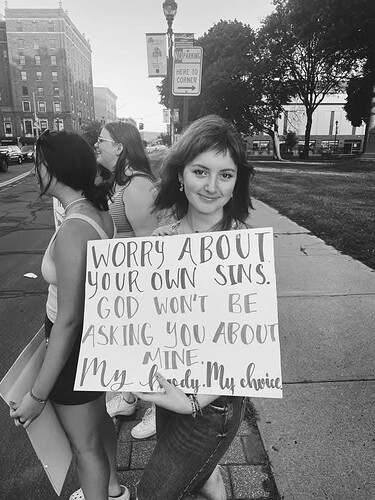 NO
PARKING
HERE TO
CORNER
WORRY ABOUT
YOUR OWN SINS.
GOD WON'T BE
ASKING YOU ABOUT
MINE.
My body. My choice